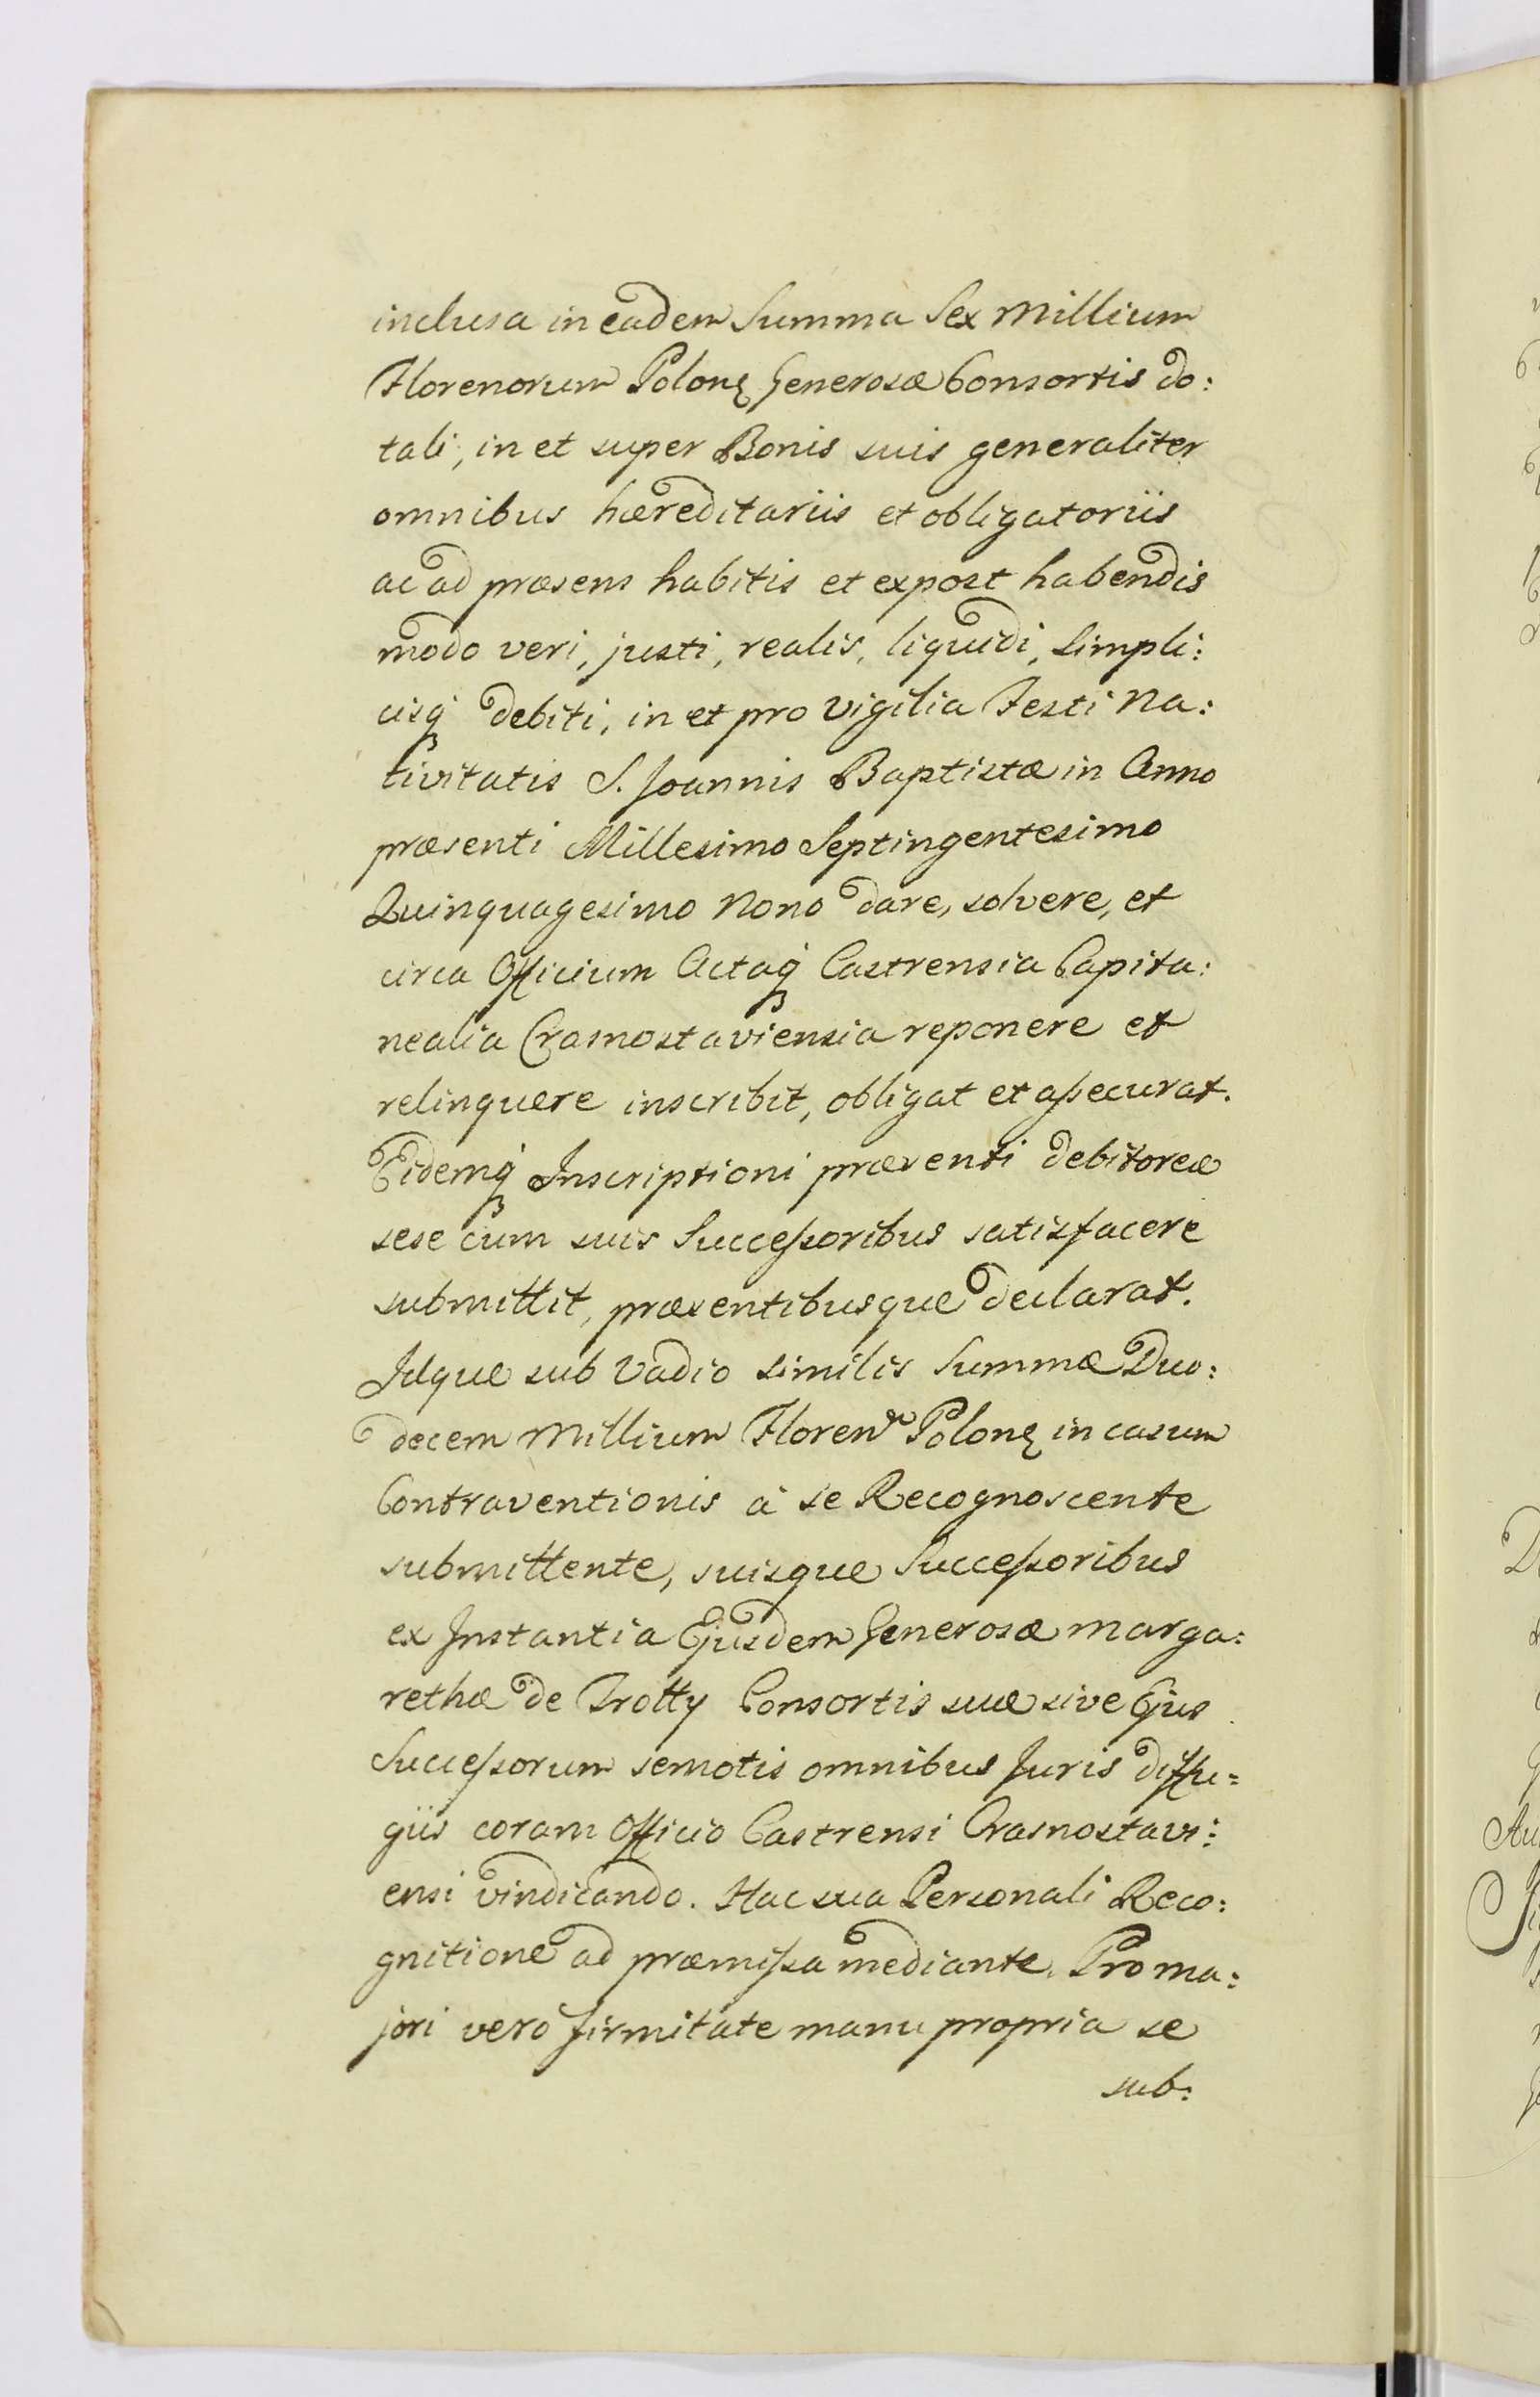 inclusa in eadem Summa Sex Millium
Florenorum Polonę Generosæ Consortis do:
tali, in et super Bonis suis generaliter
omnibus hæreditariis et obligatoriis
ac ad præsens habitis et expost habendis
modo veri, justi, realis, liquidi, simpli:
cisq́ꝫ debiti, in et pro Vigilia Festi Na:
tivitatis S. Joannis Baptistæ in Anno
præsenti Millesimo Septingentesimo
Quinquagesimo Nono dare, solvere, et
circa Officium Actaq́ꝫ Castrensia Capita:
nealia Crasnostaviensia reponere et
relinquere inscribit, obligat et assecurat.
Eidemq́ꝫ Inscriptioni præsenti debitoreæ
sese cum suis Successoribus satisfacere
submittit, præsentibusque declarat.
Idque sub Vadio similis Summæ Duo:
decem Millium Floren Polonę in casum
Contraventionis à se Recognoscente
submittente, suisque Successoribus
ex Instantia Ejusdem Generosæ Marga:
rethæ de Trotty Consortis suæ sive Ejus
Successorum semotis omnibus Juris diffu=
giis coram Officio Castrensi Crasnostavi:
ensi vindicando. Hac sua Personali Reco:
gnitione ad præmissa mediante. Pro ma:
jori verò firmitate manu propria se
sub: